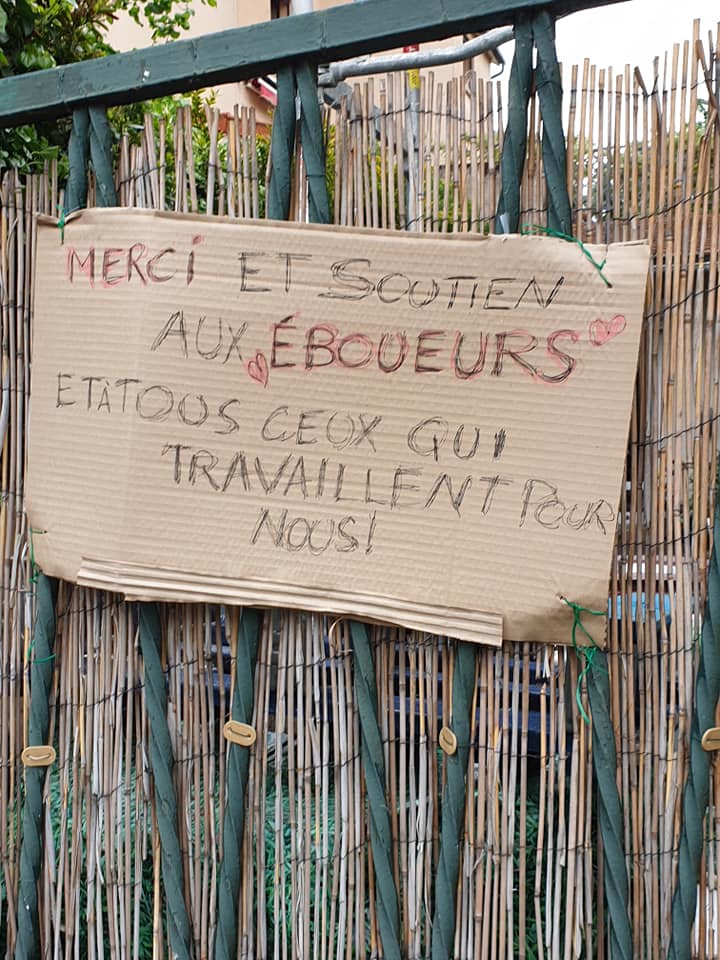 MERCi ET SOUTIEN
AUX ÉBOUEURS
ET À TOUS CEUX QUI
TRAVAILLENT POUR
NOUS!